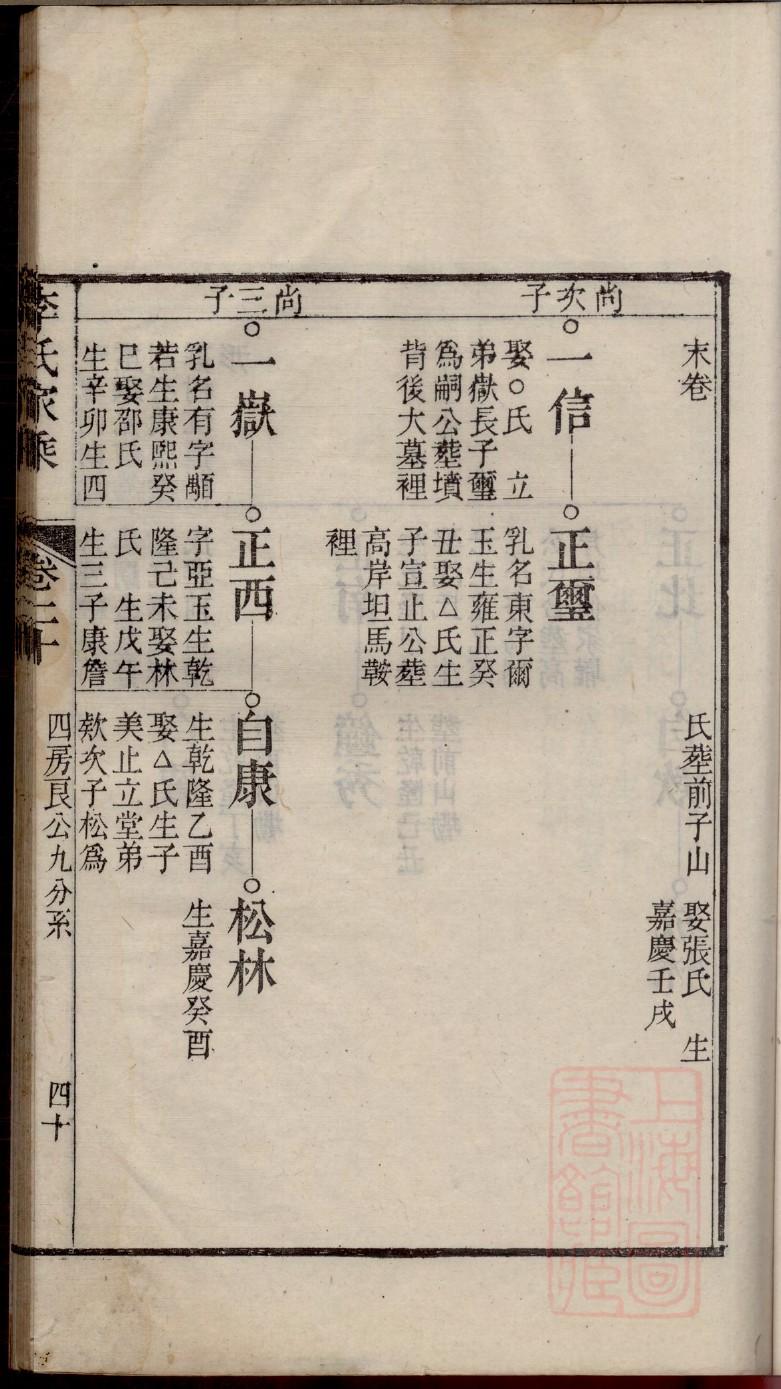 末卷
氏塟前子山
娶張氏 生
嘉慶壬戌
尚次子
一信
娶○氏 立
弟嶽長子璽
爲嗣公塟墳
背後大墓裡
正璽
乳名東字爾
玉生雍正癸
丑娶△氏生
子宣止公塟
高岸坦馬鞍
裡
尚三子
一嶽
乳名有字顒
若生康熙癸
巳娶邵氏
生辛卯生四
正西
字亞玉生乾
隆己未娶林
氏 生戊午
生三子康詹
欸次子松爲
自康
生乾隆乙酉
娶△氏生子
美止立堂弟
松林
生嘉慶癸酉
李氏家乘
卷二十
四房良公九分系
四十
上海圖
書館藏